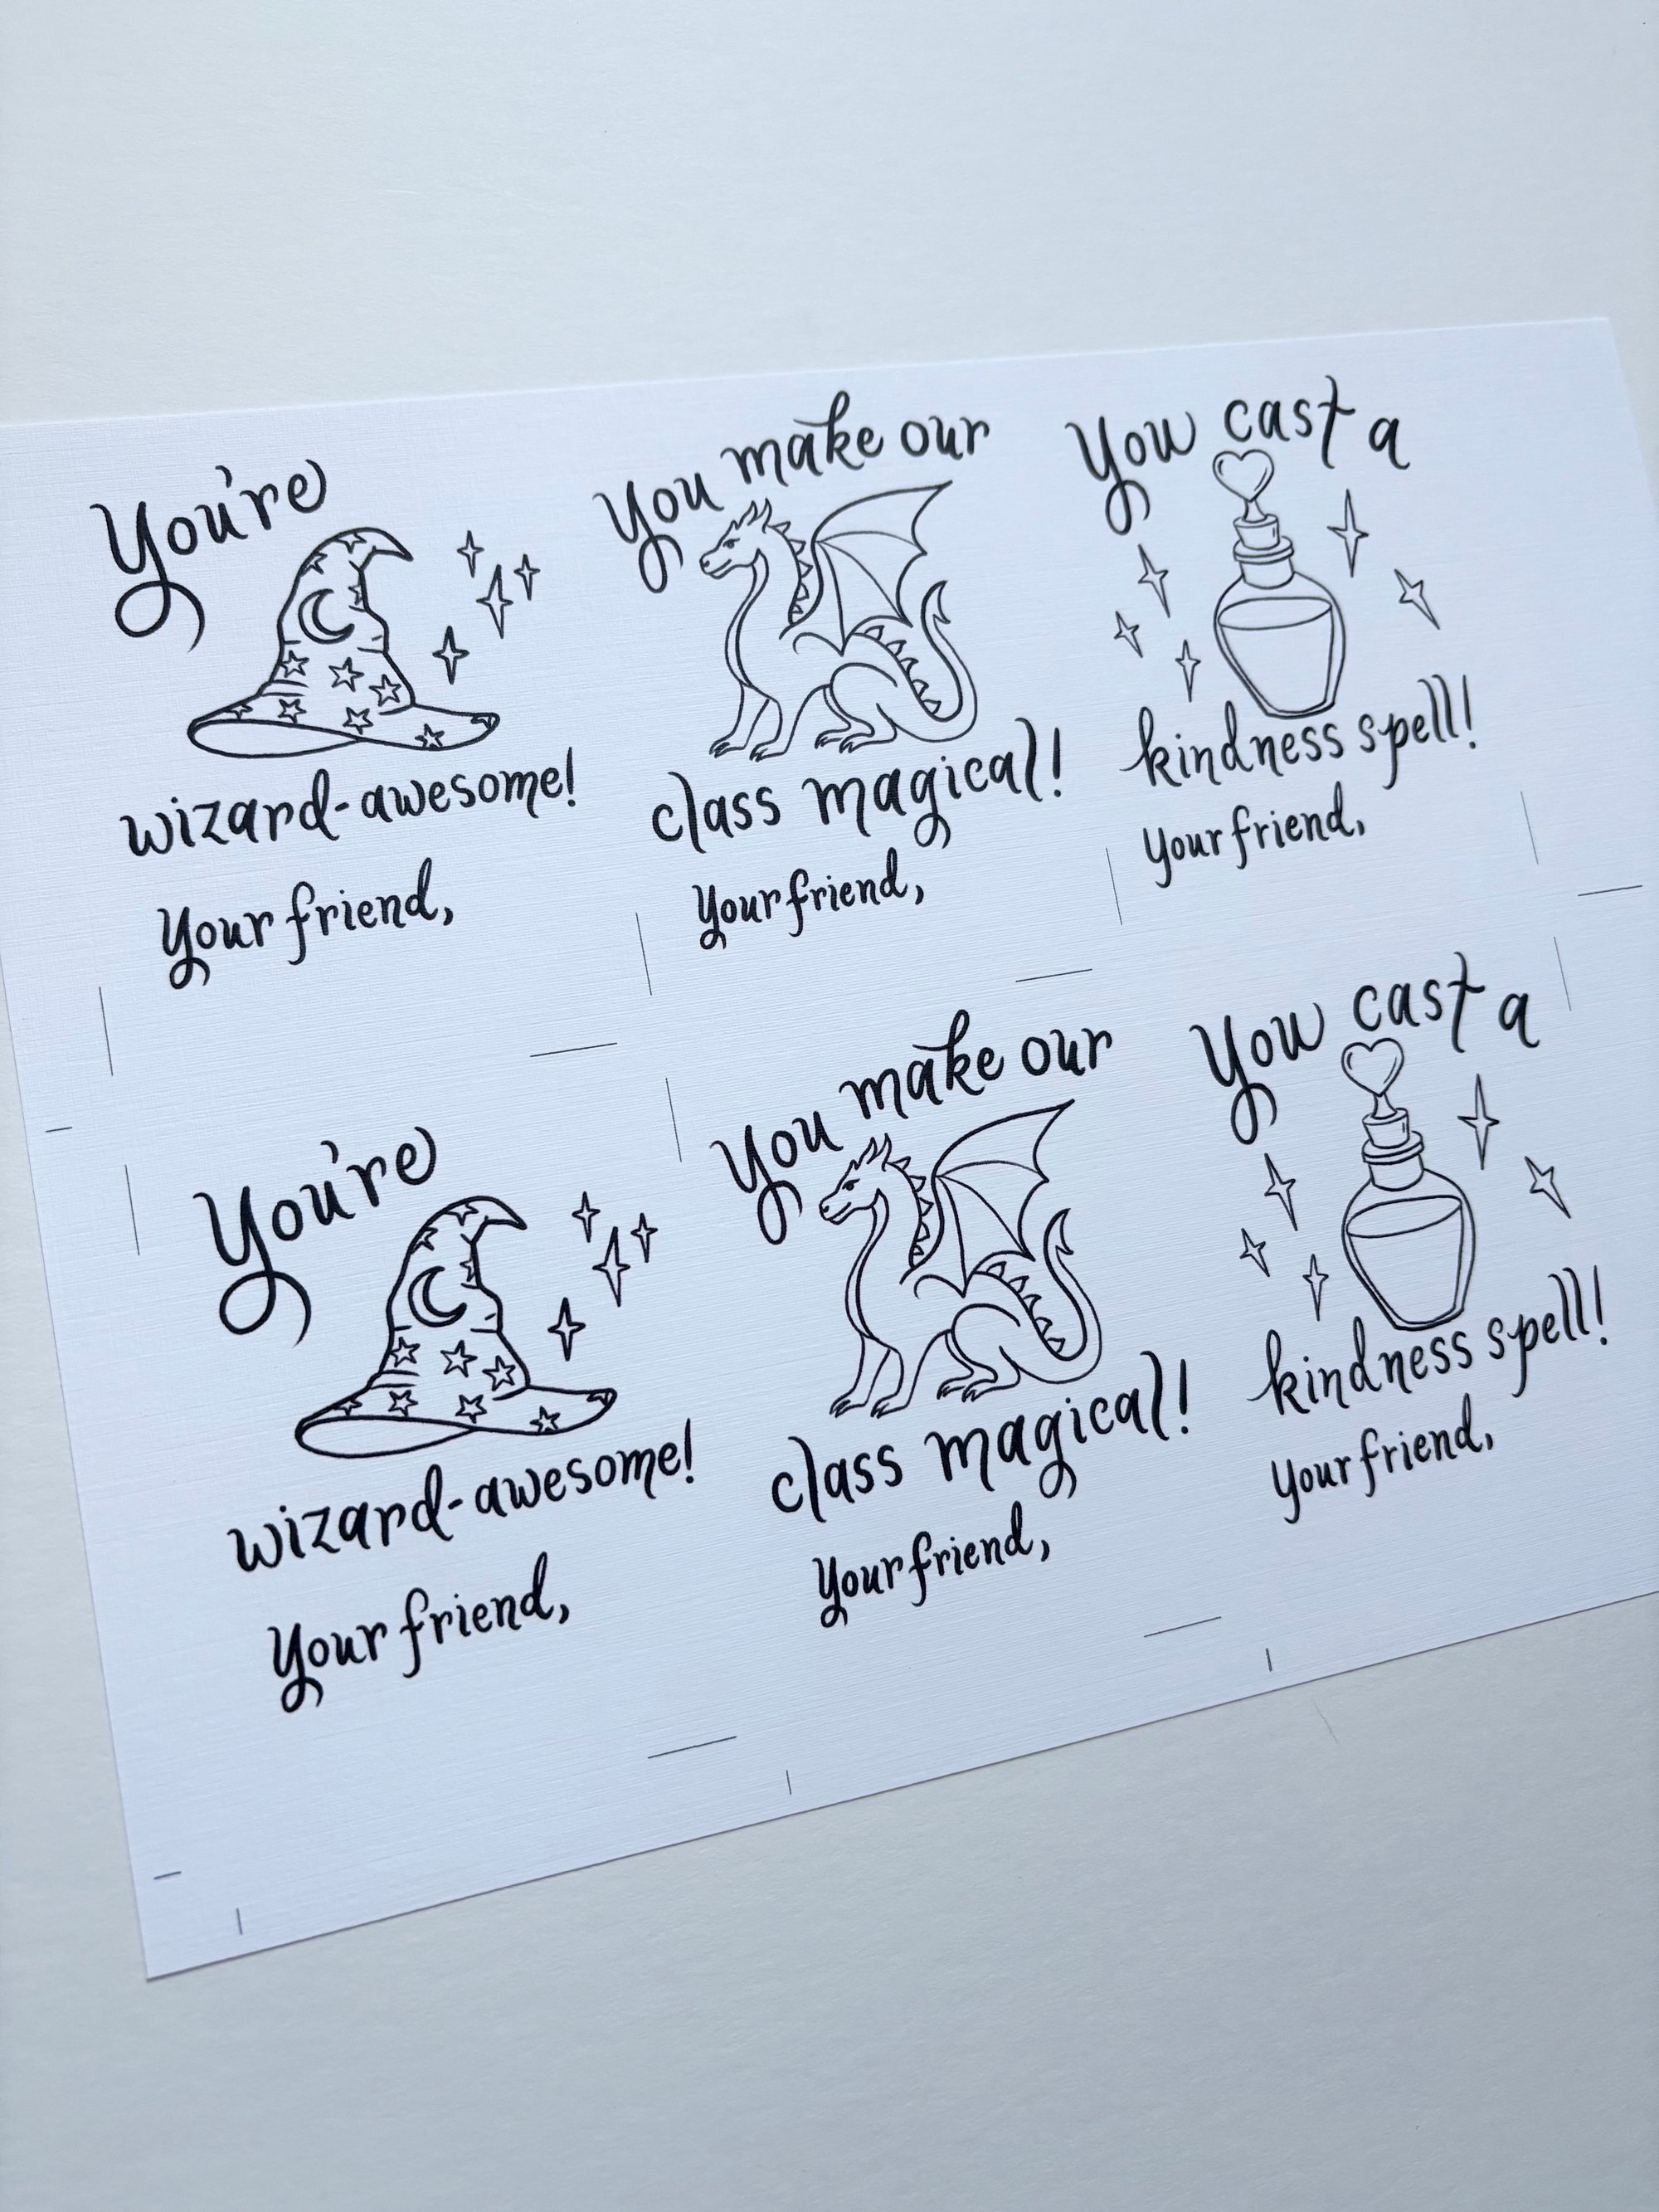 You're
wizard-awesome!
Your friend,
You make our
class magical!
Your friend,
You cast a
kindness spell!
Your friend,
You're
wizard-awesome!
Your friend,
You make our
class magical!
Your friend,
You cast a
kindness spell!
Your friend,